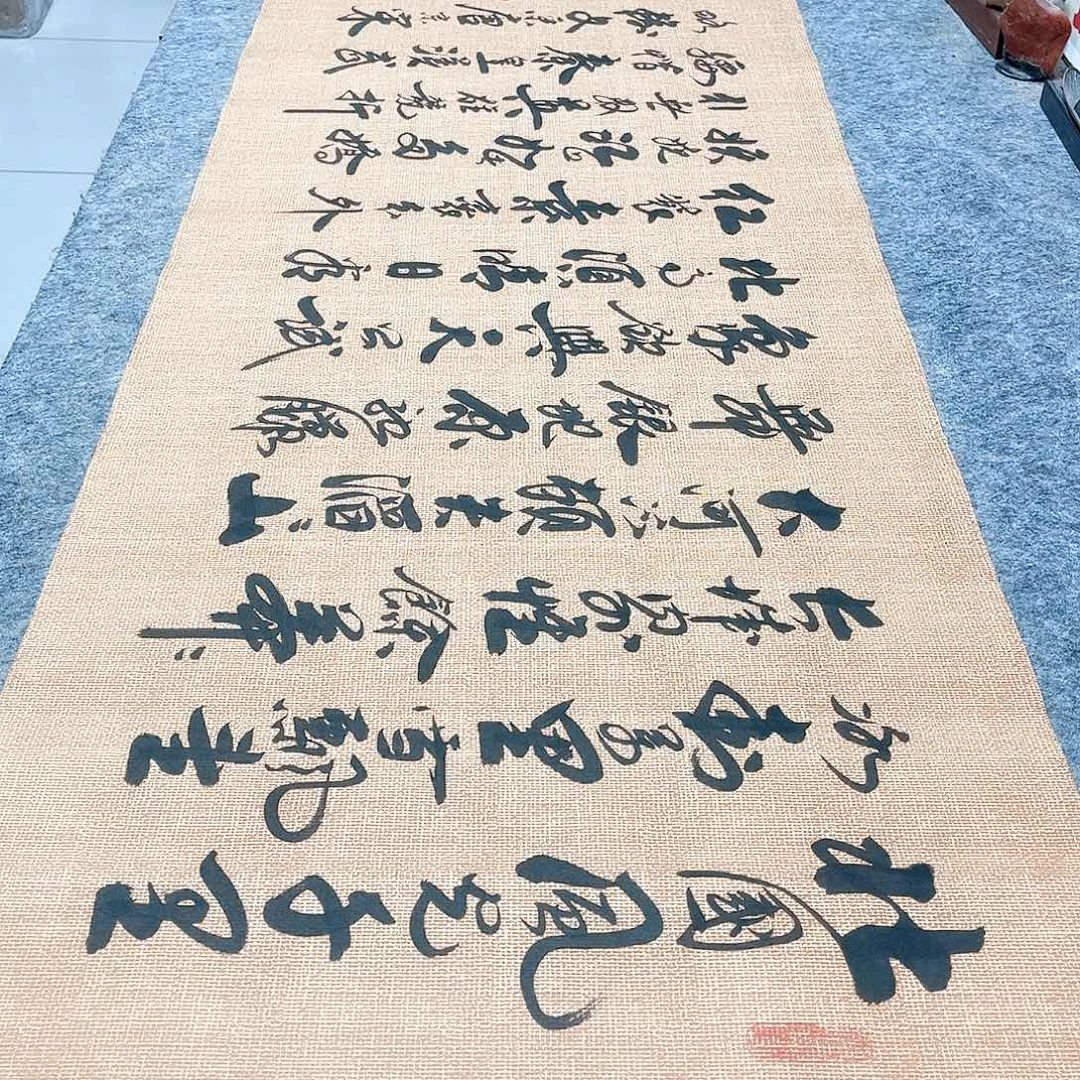 北國風光千里
冰封萬里雪飄望
長城内外惟餘莽〻
大河上下頓失滔〻山
舞銀蛇原馳臘
象欲與天公試
比高須晴日看
紅裝素裹分外
妖嬈江山如此多嬌
引無數英雄競折
腰惜秦皇漢武
略輸文采唐宗宋